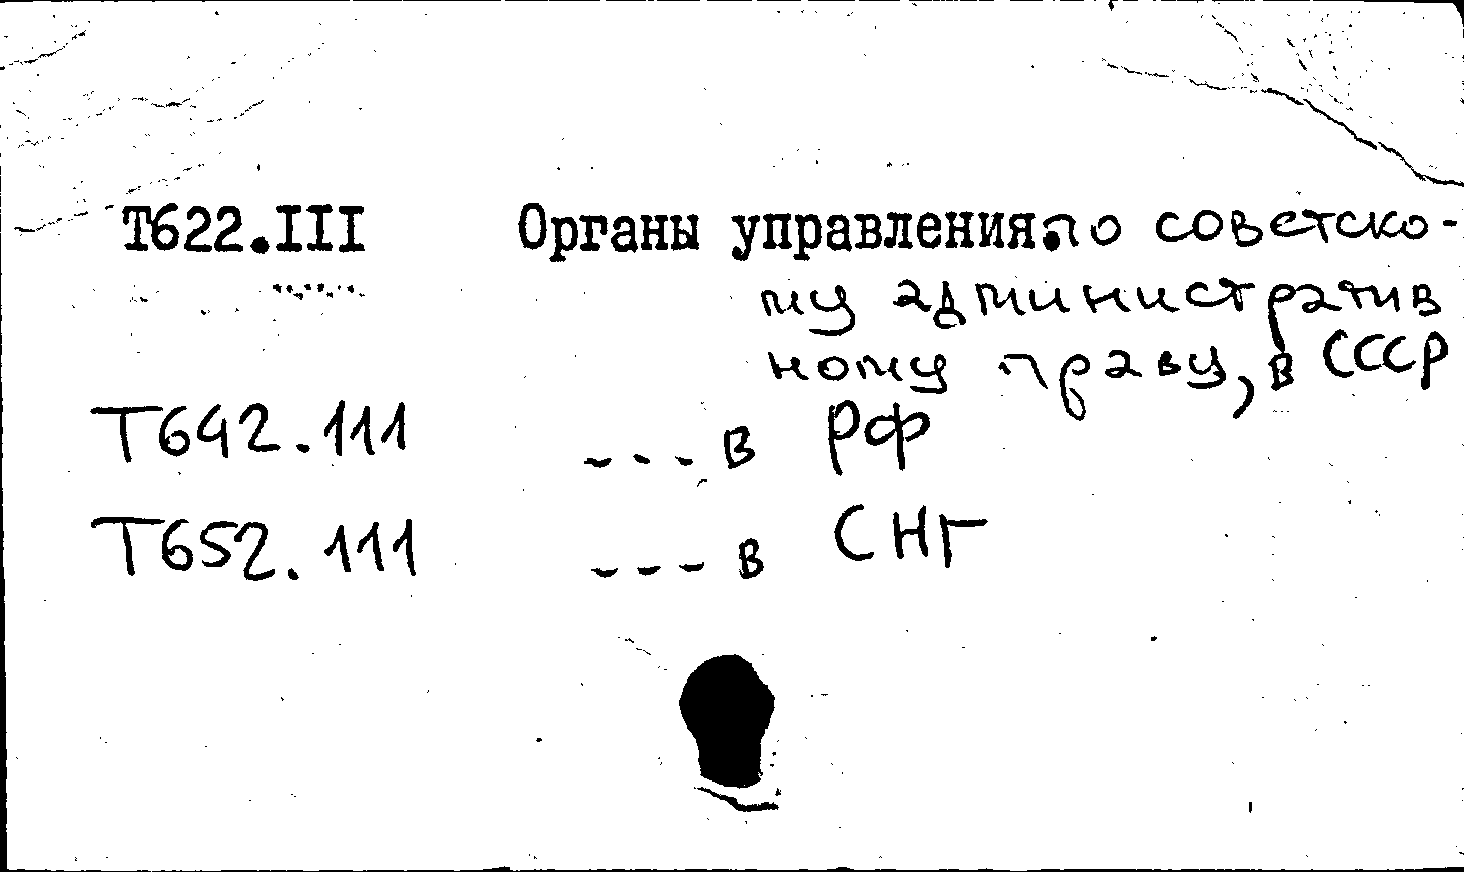 Т622.III Органы управления.по советско-
му административ
ному праву, в СССР
Т642.111 --- в РФ
Т652.111 --- в СНГ